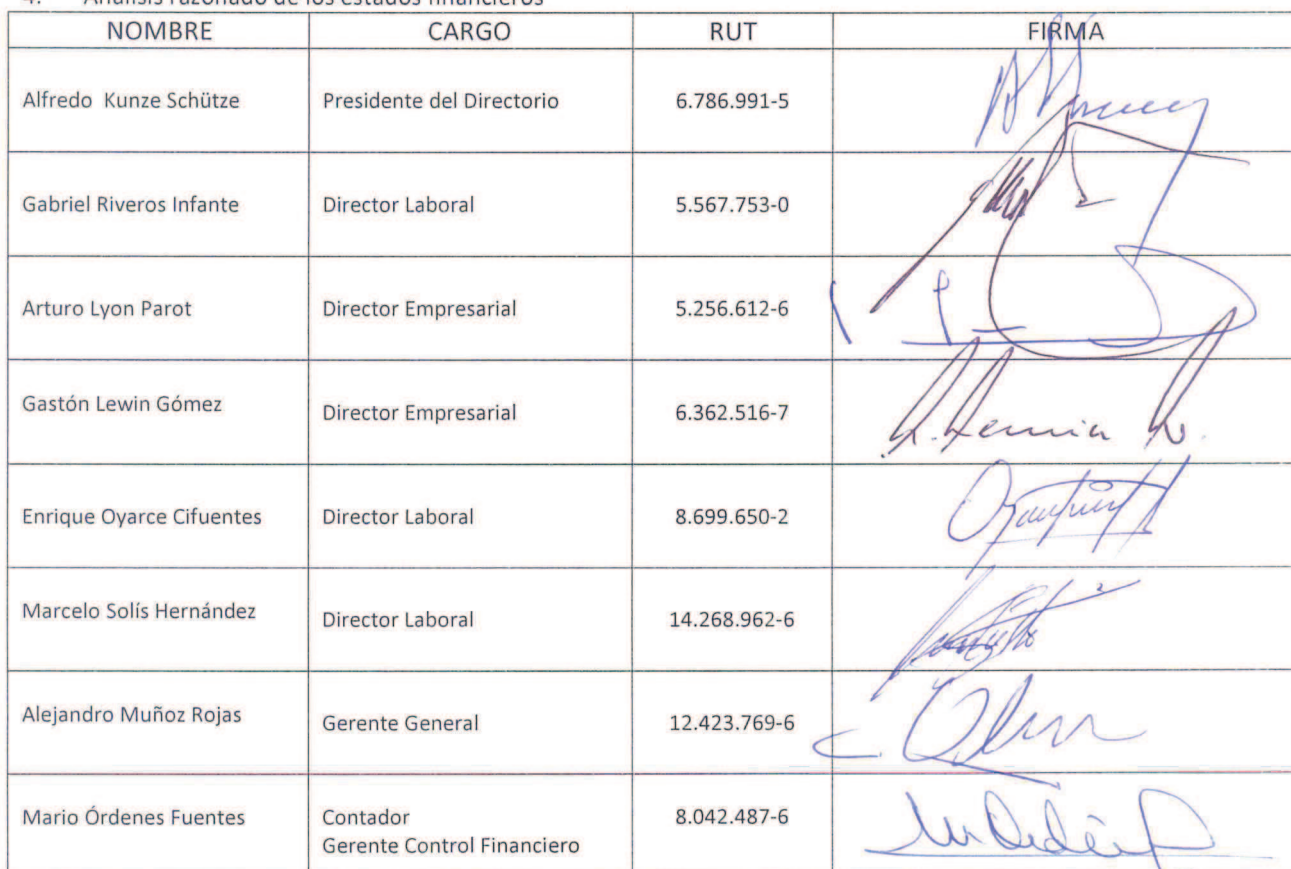 4. Análisis razonado de los estados financieros
NOMBRE CARGO RUT FIRMA
Alfredo Kunze Schütze Presidente del Directorio 6.786.991-5
Gabriel Riveros Infante Director Laboral 5.567.753-0
Arturo Lyon Parot Director Empresarial 5.256.612-6
Gastón Lewin Gómez Director Empresarial 6.362.516-7
Enrique Oyarce Cifuentes Director Laboral 8.699.650-2
Marcelo Solís Hernández Director Laboral 14.268.962-6
Alejandro Muñoz Rojas Gerente General 12.423.769-6
Mario Órdenes Fuentes Contador 8.042.487-6
Gerente Control Financiero